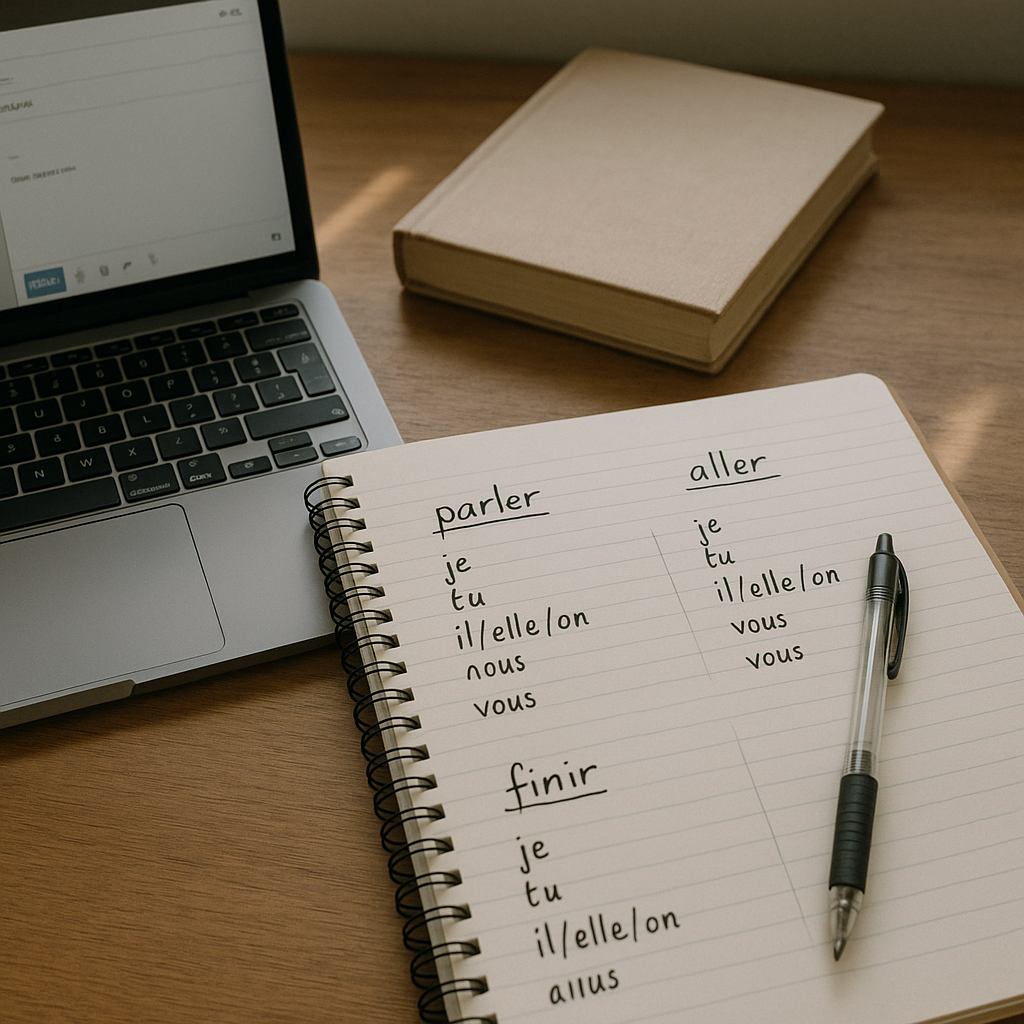 parler
je
tu
il/elle/on
nous
vous
aller
je
tu
il/elle/on
vous
vous
finir
je
tu
il/elle/on
allus